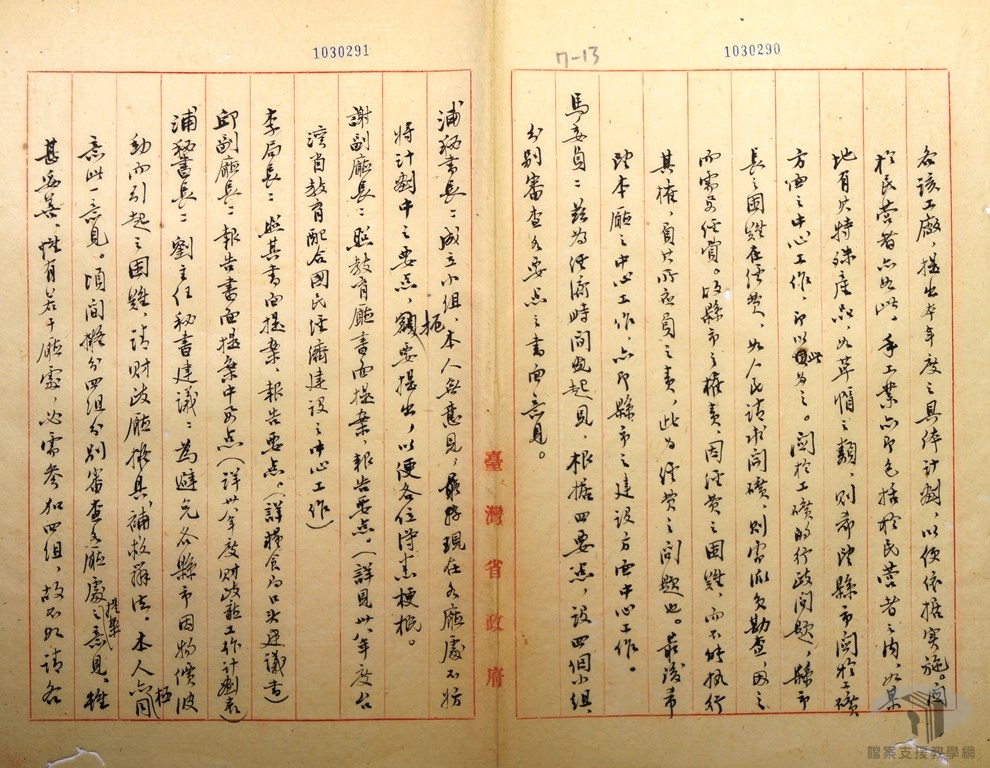 1030290
各該工廠，提出本年度之具体計劃，以便依據實施。關
於民營者亦如此。手工業亦即包括於民營者之內，如某
地有其特殊產品，如草帽之類，則希望縣市關於工礦
方面之中心工作，即以此為之。關於工礦的行政問題，縣市
長之困難在經費，如人民請求開礦，則需派員勘查，因之
而需要經費。故縣市之權責，因經費之困難，而不能执行
其權，負其所应負之責，此為經費之问題也。最後希
望本廳之中心工作，亦即縣市之建設方面中心工作。
馬委員：茲為經濟時間起見，根據四要点，設四個小組，
分別審查各要点之書面意見。
7-13
臺灣省政府
1030291
浦秘書長：成立小組，本人無意見，最好現在各廳處不妨
將計劃中之要点，扼要提出，以便各位得悉梗概。
謝副廳長：照教育廳書面提案，報告要点。（詳見卅八年度台
灣省教育配合國民经濟建設之中心工作）
李局長：照其書面提案，報告要点。（詳糧食局口头建議書）
邱副廳長：報告書面提案中要点（詳卅八年度財政廳工作計劃表）
浦秘書長：劉主任秘書建議：為避免各縣市因物價波
動而引起之困難，請財政廳擬具補救辦法。本人亦極同
意此一意見。頃間擬分四組分別審查各廳處之提案意見。雖
甚妥善，惟有若干廳處，必需參加四組，故不如請各
檔案支援教學網